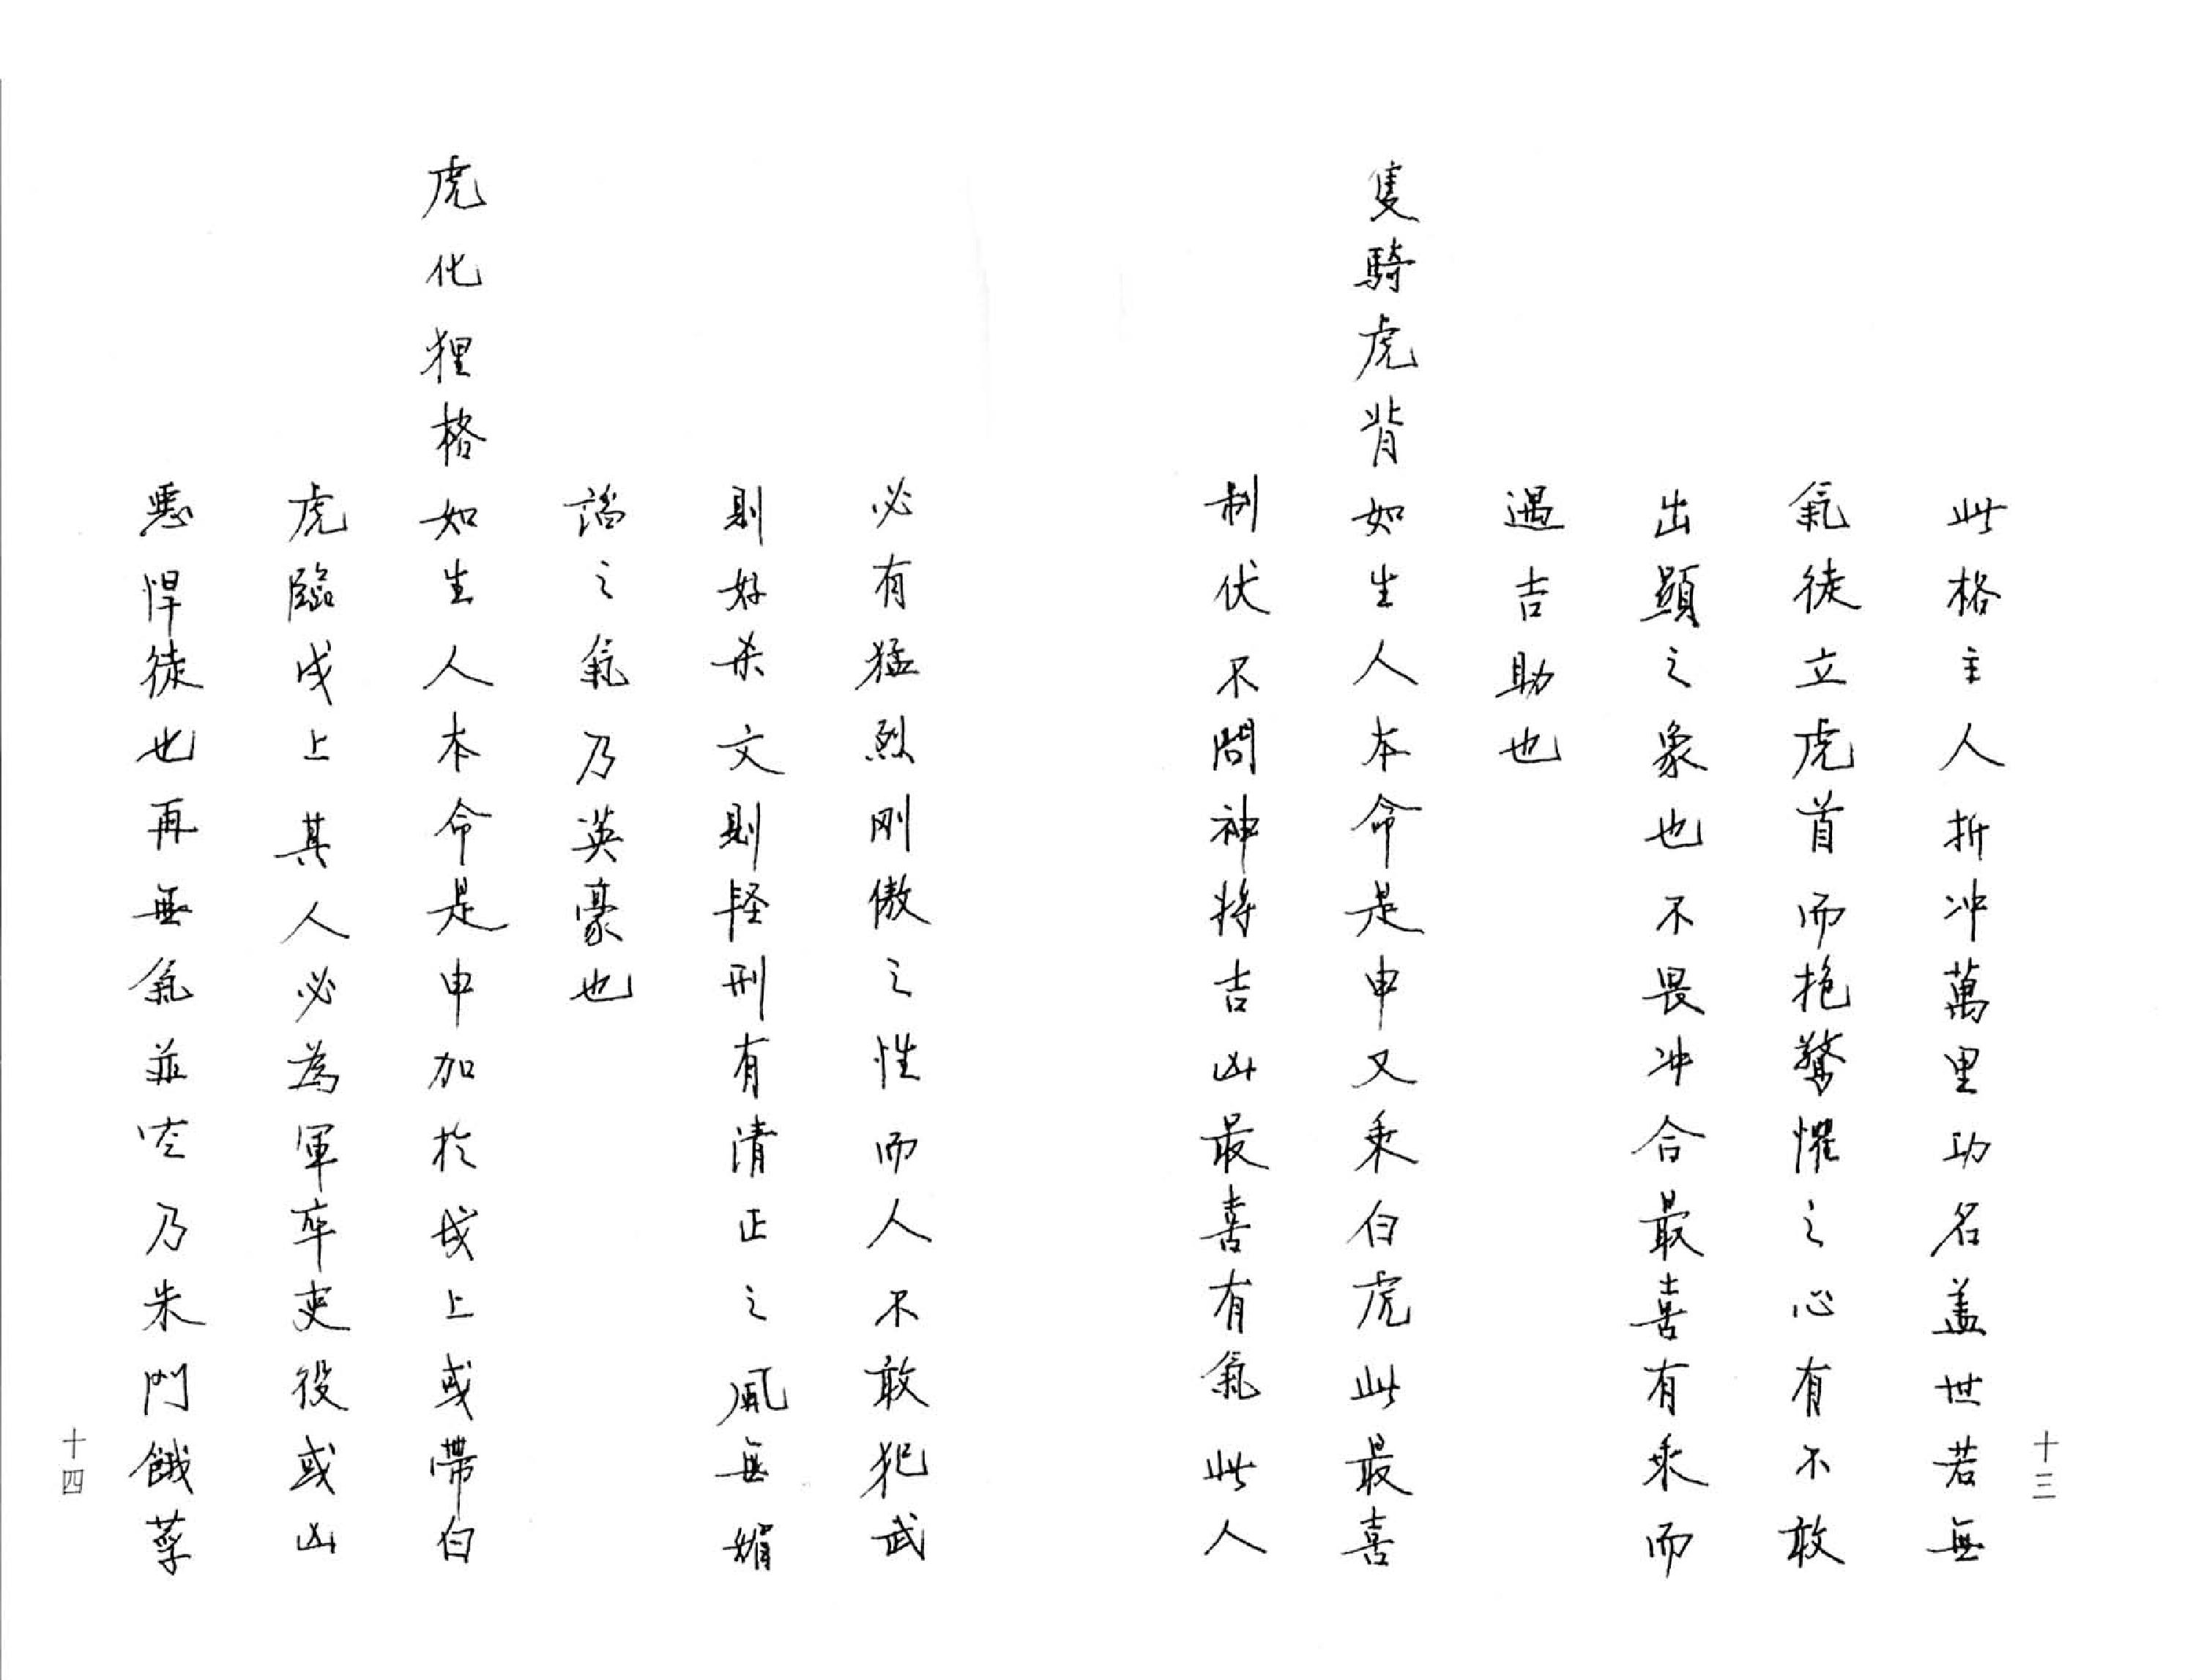 十三
此格主人折冲萬里功名盖世若無
氣徒立虎首而抱驚懼之心有不敢
出顯之象也不畏冲合最喜有乘而
遇吉助也
隻騎虎背如生人本命是申又乘白虎此最喜
制伏不問神將吉凶最喜有氣此人
必有猛烈刚傲之性而人不敢犯武
則好杀文則刑有清正之風無媚
諂之氣乃英豪也
虎化狸格如生人本命是申加於戌上或帶白
虎臨戌上其人必為軍卒吏役或凶
悪悍徒也再無氣並空乃朱門餓莩
十四